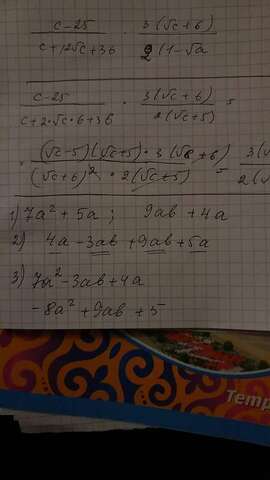 c-25 / c+12√c+36 · 3(√c+6) / 2(1-√a
c-25 / c+2·√c·6+36 · 3(√c+6) / 2(√c+5) =
= (√c-5)(√c+5)·3(√c+6) / (√c+6)²·2(√c+5) = 3(√ / 2(√
1) 7a²+5a; 9ab+4a
2) 4a-3ab+9ab+5a
3) 7a²-3ab+4a
-8a²+9ab+5
Temp